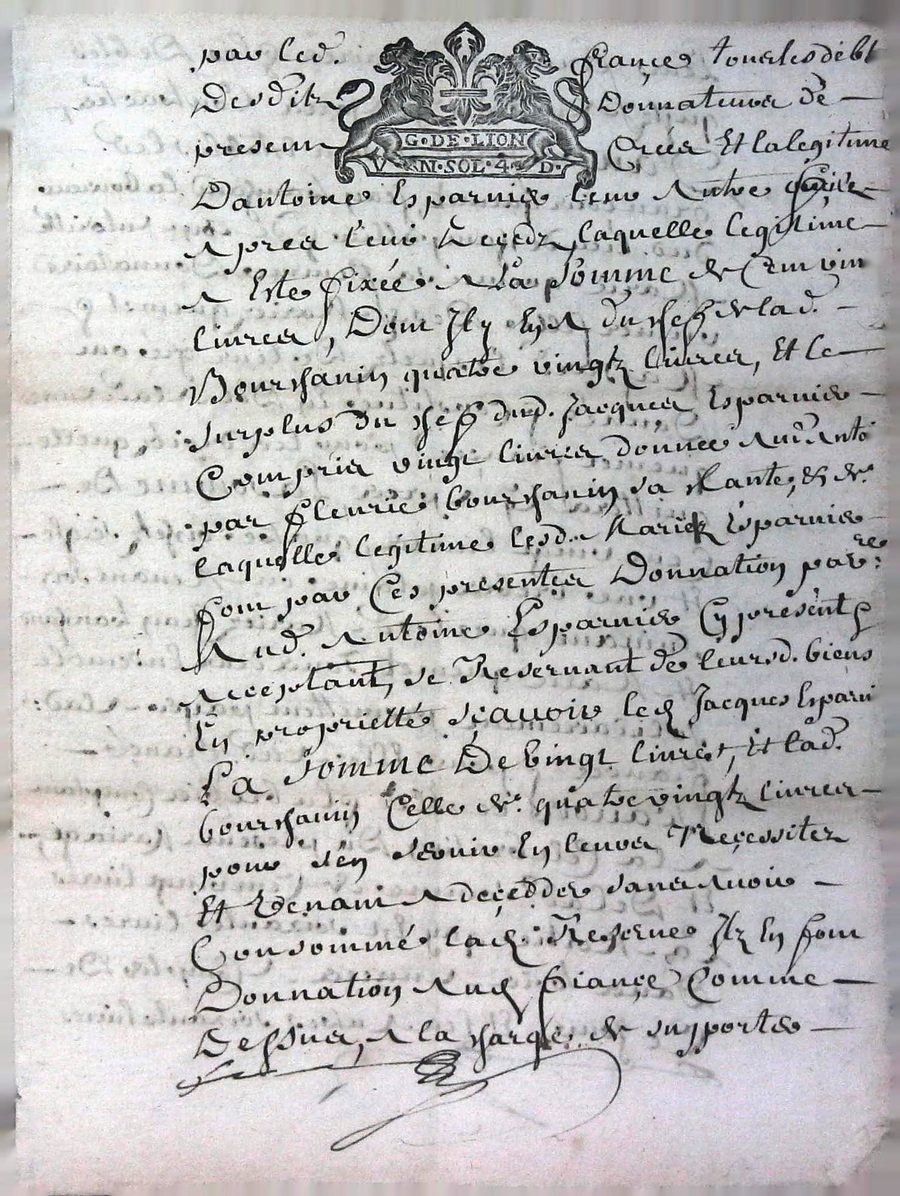 par led. fiance tous les debt
Desditz Donnateurs de
presenr G·DE·LION Crees Et la legitime
V N·SOL·4·D·
D'antoine Esparvier leur Autre
Apres leur deçedz, laquelle legitime
A Este fixée A La Somme de Cent vin
livres, Dont Il y En A du chef de lad.
Bourchanin quatre vingtz livres, Et le
surplus du chef dud. Jacques Esparvier
Compris vingt livres donnée Aud. Anto
par fleurie bourchanin sa tante, & de
laquelle legitime lesd. Mariez Esparvier
font par Ces presentes Donnation par
Aud. Antoine Esparvier Cy present &
Acceptant, se Reservant de leursd. biens
En proprietté sçauoir led Jacques Esparvi
La Somme De vingt livres, Et lad.
bourchanin Celle de quatre vingtz livres
pour s'en servir En leurs Neçessitez
Et Venant A deçedder sans Avoir
Consommé lad Reserve Ilz En font
Donnation Aud fiançe Comme
Dessus, A la charge de supporter